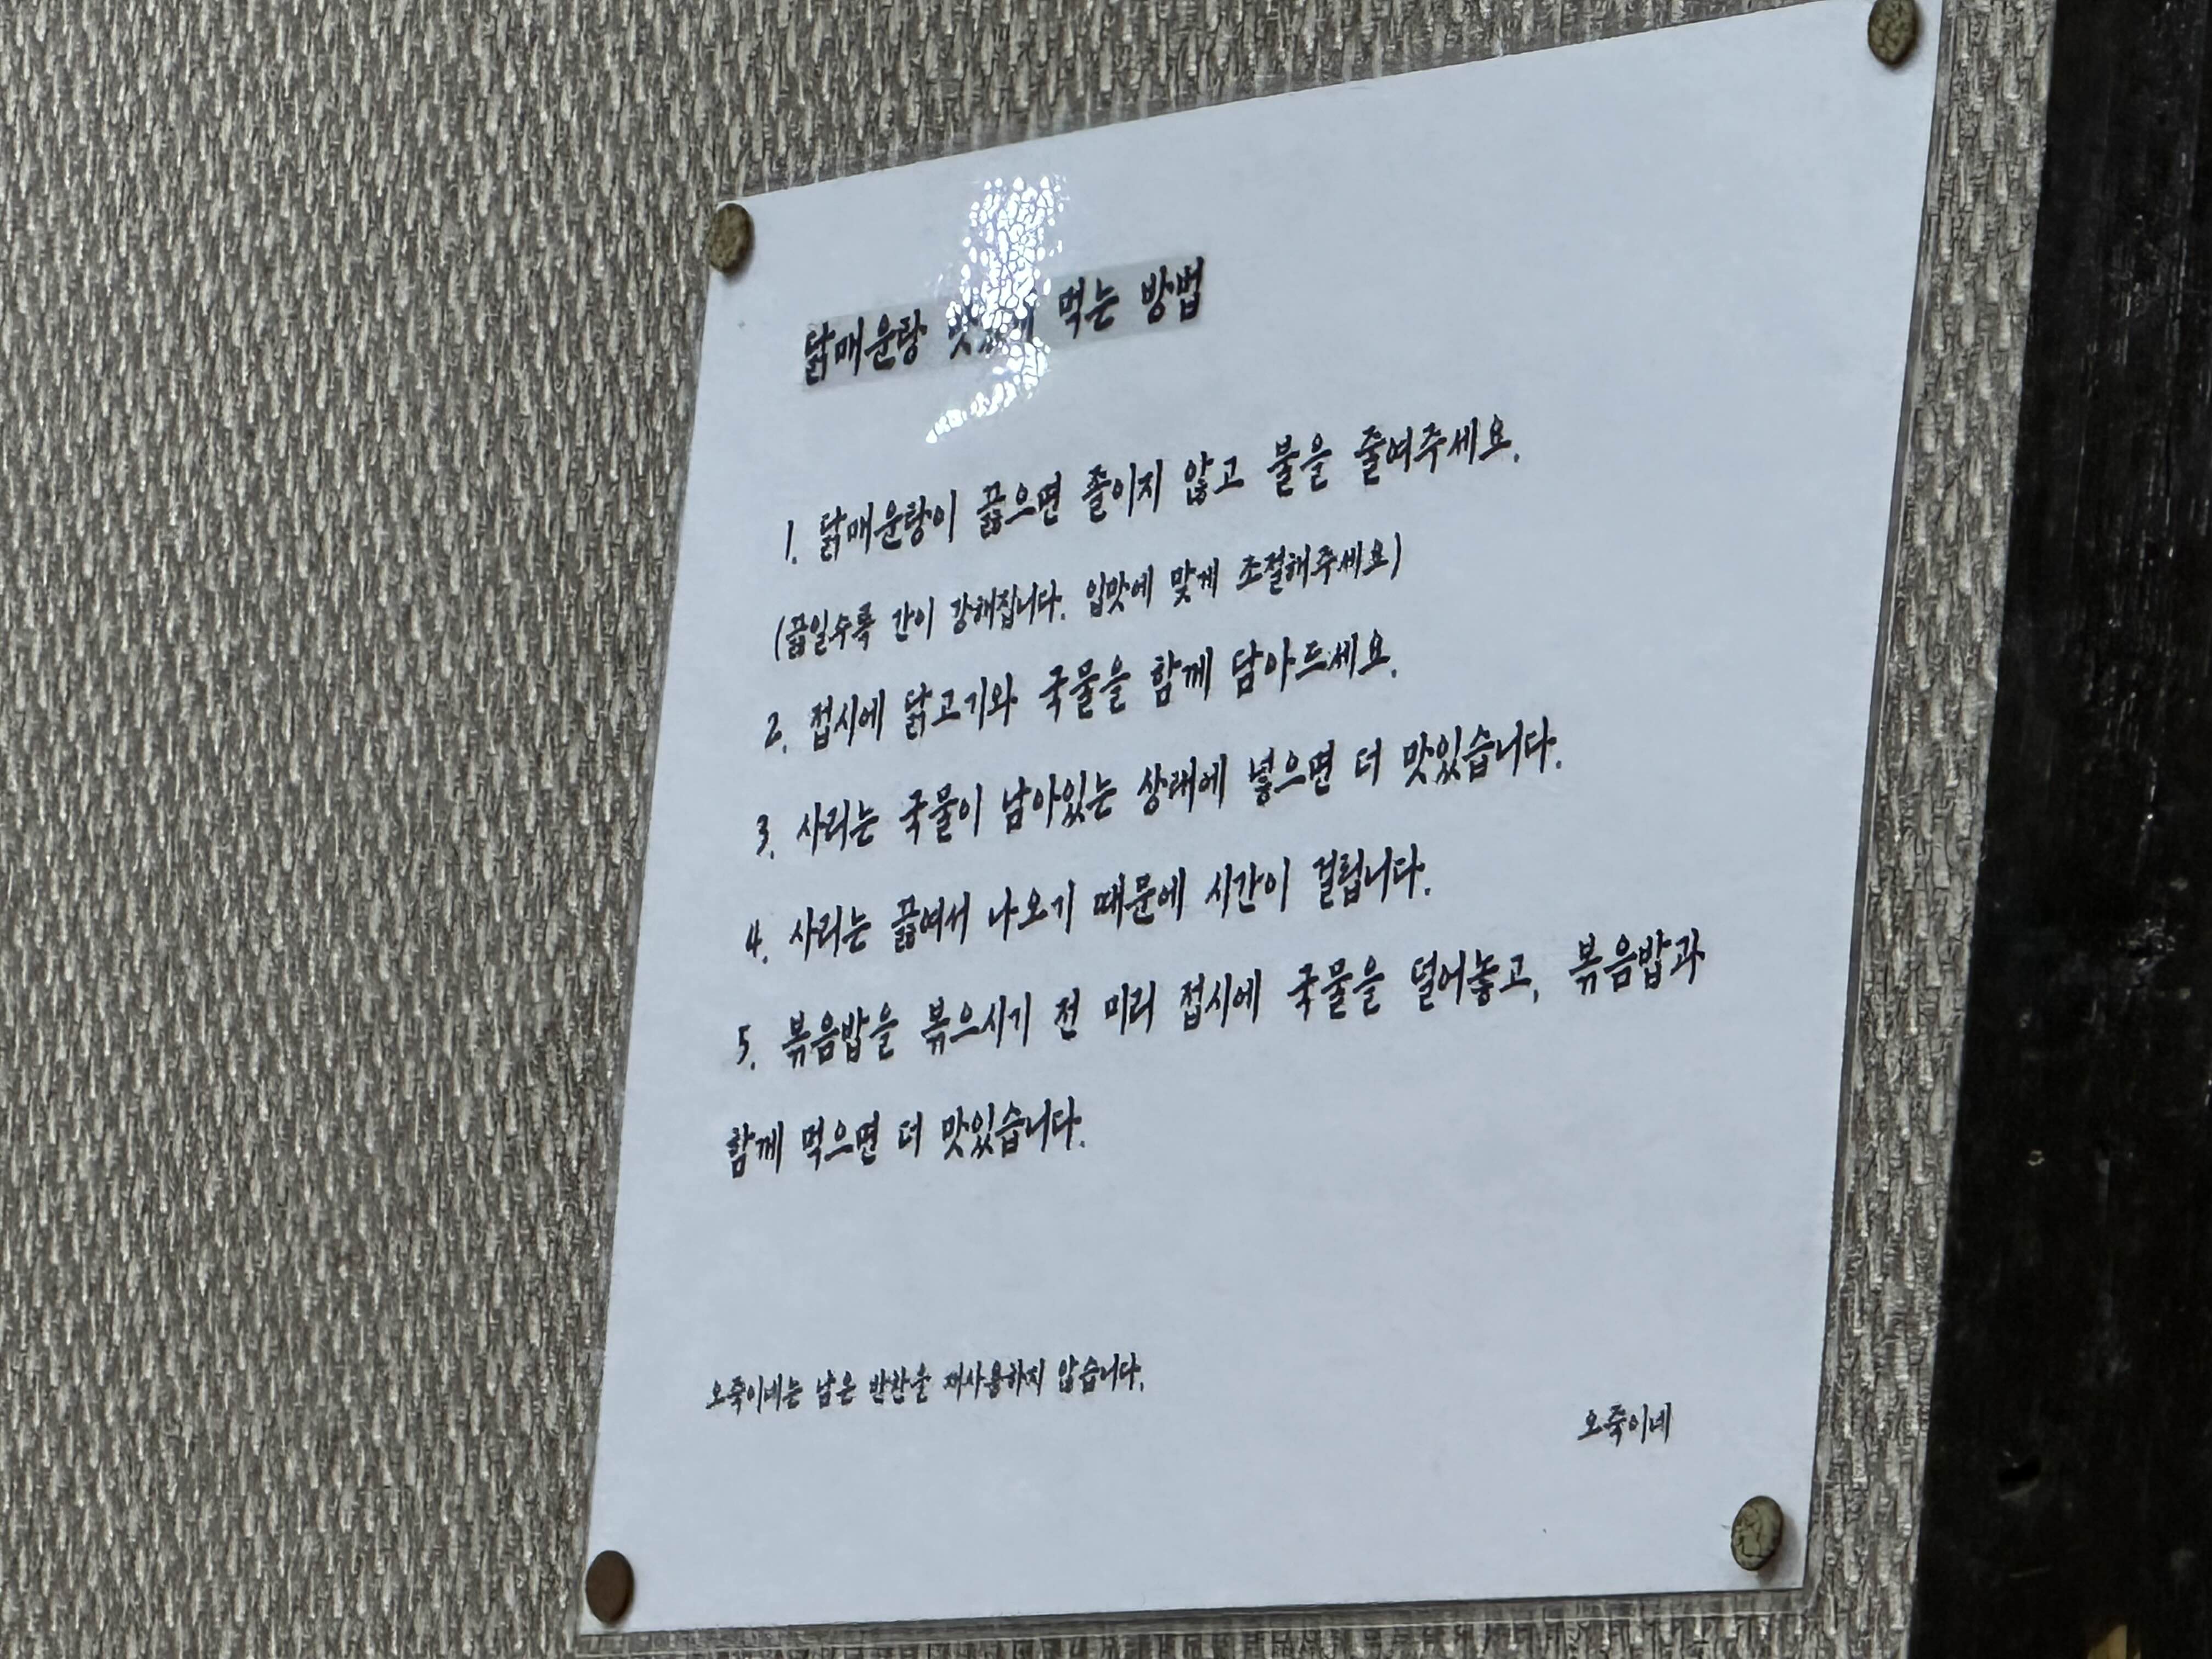 닭매운탕 맛있게 먹는 방법
1. 닭매운탕이 끓으면 졸이지 않고 불을 줄여주세요.
(끓일수록 간이 강해집니다. 입맛에 맞게 조절해주세요)
2. 접시에 닭고기와 국물을 함께 담아드세요.
3. 사리는 국물이 남아있는 상태에 넣으면 더 맛있습니다.
4. 사리는 끓여서 나오기 때문에 시간이 걸립니다.
5. 볶음밥을 볶으시기 전 미리 접시에 국물을 덜어놓고, 볶음밥과
함께 먹으면 더 맛있습니다.
오죽이네는 남은 반찬을 재사용하지 않습니다.
오죽이네